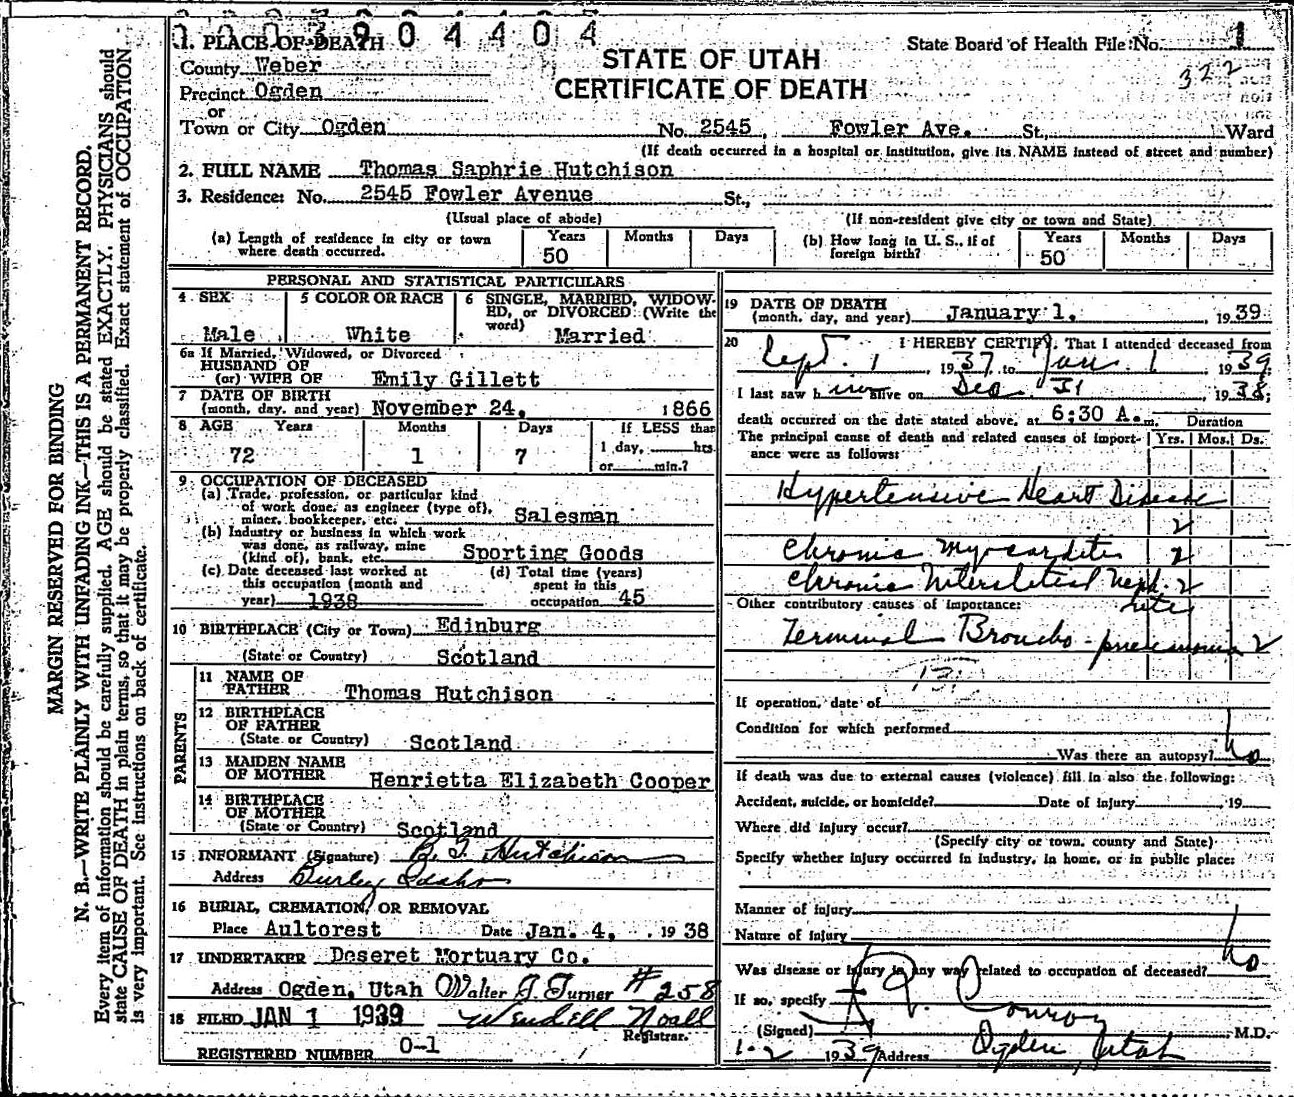 0003904404
1. PLACE OF DEATH
State Board of Health File No. 1
County Weber
STATE OF UTAH
322
Precinct Ogden
CERTIFICATE OF DEATH
or
Town or City Ogden No. 2545, Fowler Ave. St., Ward
(If death occurred in a hospital or institution, give its NAME instead of street and number)
2. FULL NAME Thomas Saphrie Hutchison
3. Residence: No. 2545 Fowler Avenue St.,
(Usual place of abode) (If non-resident give city or town and State)
(a) Length of residence in city or town where death occurred. Years 50 Months Days
(b) How long in U. S., if of foreign birth? Years 50 Months Days
PERSONAL AND STATISTICAL PARTICULARS
4 SEX Male
5 COLOR OR RACE White
6 SINGLE, MARRIED, WIDOW-
ED, or DIVORCED (Write the
word) Married
6a If Married, Widowed, or Divorced
HUSBAND OF
(or) WIFE OF Emily Gillett
7 DATE OF BIRTH
(month, day, and year) November 24, 1866
8 AGE Years Months Days If LESS than
72 1 7 1 day, hrs.
or min.?
9 OCCUPATION OF DECEASED
(a) Trade, profession, or particular kind
of work done, as engineer (type of),
miner, bookkeeper, etc. Salesman
(b) Industry or business in which work
was done, as railway, mine
(kind of), bank, etc. Sporting Goods
(c) Date deceased last worked at
this occupation (month and
year) 1938
(d) Total time (years)
spent in this
occupation 45
10 BIRTHPLACE (City or Town) Edinburg
(State or Country) Scotland
PARENTS
11 NAME OF
FATHER Thomas Hutchison
12 BIRTHPLACE
OF FATHER
(State or Country) Scotland
13 MAIDEN NAME
OF MOTHER Henrietta Elizabeth Cooper
14 BIRTHPLACE
OF MOTHER
(State or Country) Scotland
15 INFORMANT (Signature) B. T. Hutchison
Address Burley Idaho
16 BURIAL, CREMATION, OR REMOVAL
Place Aultorest Date Jan. 4, 1938
17 UNDERTAKER Deseret Mortuary Co.
Address Ogden, Utah Walter J. Turner #258
18 FILED JAN 1 1939 Wendell Noall
Registrar.
REGISTERED NUMBER 0-1
19 DATE OF DEATH
(month, day, and year) January 1, 1939
20 I HEREBY CERTIFY, That I attended deceased from
Sept. 1, 1937, to Jan 1 1939;
I last saw h im alive on Dec. 31, 1938;
death occurred on the date stated above, at 6:30 A.m. Duration
The principal cause of death and related causes of import- Yrs. Mos. Ds.
ance were as follows:
Hypertensive Heart Disease
2
Chronic Myocarditis 2
Chronic Interstitial Neph- 2
ritis
Other contributory causes of importance:
Terminal Broncho-pneumonia 2
131
If operation, date of
Condition for which performed
Was there an autopsy? no
If death was due to external causes (violence) fill in also the following:
Accident, suicide, or homicide? Date of injury 19
Where did injury occur?
(Specify city or town, county and State)
Specify whether injury occurred in industry, in home, or in public place:
Manner of injury
Nature of injury
Was disease or injury in any way related to occupation of deceased? no
If so, specify
(Signed) Conroy M.D.
1-2 1939 Address Ogden, Utah
MARGIN RESERVED FOR BINDING
N. B.—WRITE PLAINLY WITH UNFADING INK—THIS IS A PERMANENT RECORD.
Every item of information should be carefully supplied. AGE should be stated EXACTLY. PHYSICIANS should
state CAUSE OF DEATH in plain terms, so that it may be properly classified. Exact statement of OCCUPATION
is very important. See instructions on back of certificate.